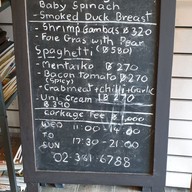 Baby Spinach
- Smoked Duck Breast
- Shrimp Gambas ฿390
- Foie Gras with Pear
Spaghetti (฿580)
- Mentaiko ฿270
- Bacon tomato ฿270
(Spicy)
- Crabmeat+Chili+Garlic
- Uni Cream ฿270
฿390
Corkage Fee ฿1,000
WED 11:00-14:00
TO
SUN 17:30-21:00
02-361-6788